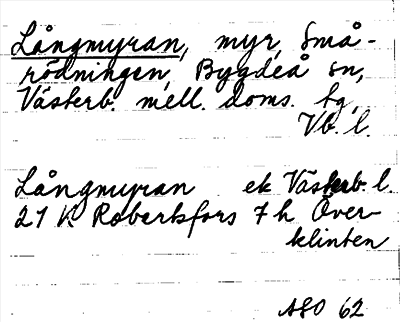 Långmyran, myr, Små-
rödningen, Bygdeå sn,
Västerb. mell. doms. tg,
Vb. l.
Långmyran ek Västerb. l.
21 K Robertsfors 7 h Över-
klinten
ASO 62